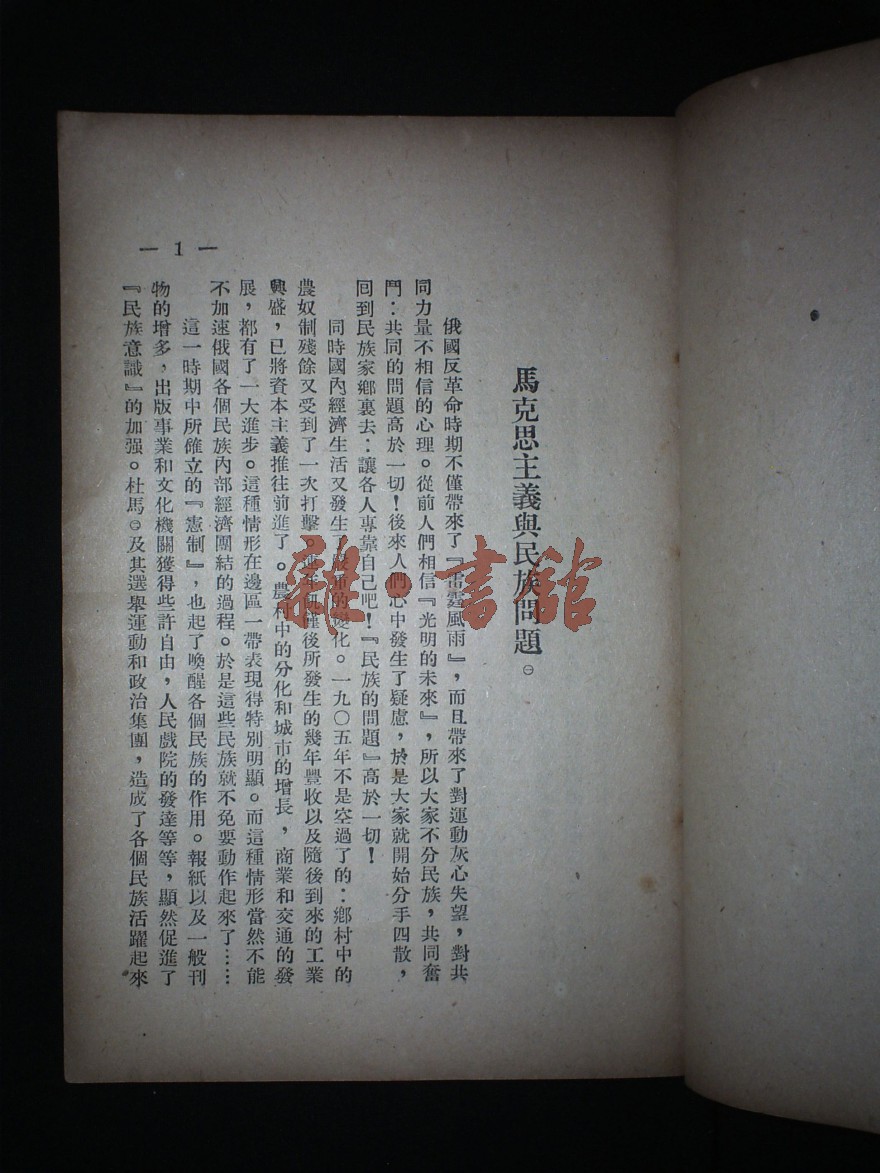 馬克思主義與民族問題。㊀
俄國反革命時期不僅帶來了『雷霆風雨』，而且帶來了對運動灰心失望，對共
同力量不相信的心理。從前人們相信『光明的未來』，所以大家不分民族，共同奮
鬥：共同的問題高於一切！後來人們心中發生了疑慮，於是大家就開始分手四散，
回到民族家鄉裏去：讓各人專靠自己吧！『民族的問題』高於一切！
同時國內經濟生活又發生了嚴重的變化。一九〇五年不是空過了的：鄉村中的
農奴制殘餘又受到了一次打擊。連年飢饉後所發生的幾年豐收以及隨後到來的工業
興盛，已將資本主義推往前進了。農村中的分化和城市的增長，商業和交通的發
展，都有了一大進步。這種情形在邊區一帶表現得特別明顯。而這種情形當然不能
不加速俄國各個民族內部經濟團結的過程。於是這些民族就不免要動作起來了……
這一時期中所確立的『憲制』，也起了喚醒各個民族的作用。報紙以及一般刊
物的增多，出版事業和文化機關獲得些許自由，人民戲院的發達等等，顯然促進了
『民族意識』的加强。杜馬㊁及其選舉運動和政治集團，造成了各個民族活躍起來
— 1 —
雜·書館